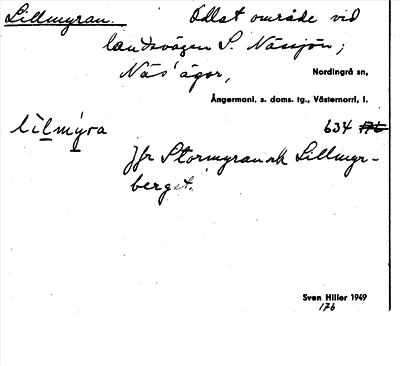 Lillmyran. Odlat område vid
landsvägen S. Nässjön;
Näs' ägor, Nordingrå sn,
Ångermanl. s. doms. tg., Västernorrl. l.
lìlmýra 634 176
Jfr Stormyran ok Lillmyr-
berget.
Sven Hiller 1949
176